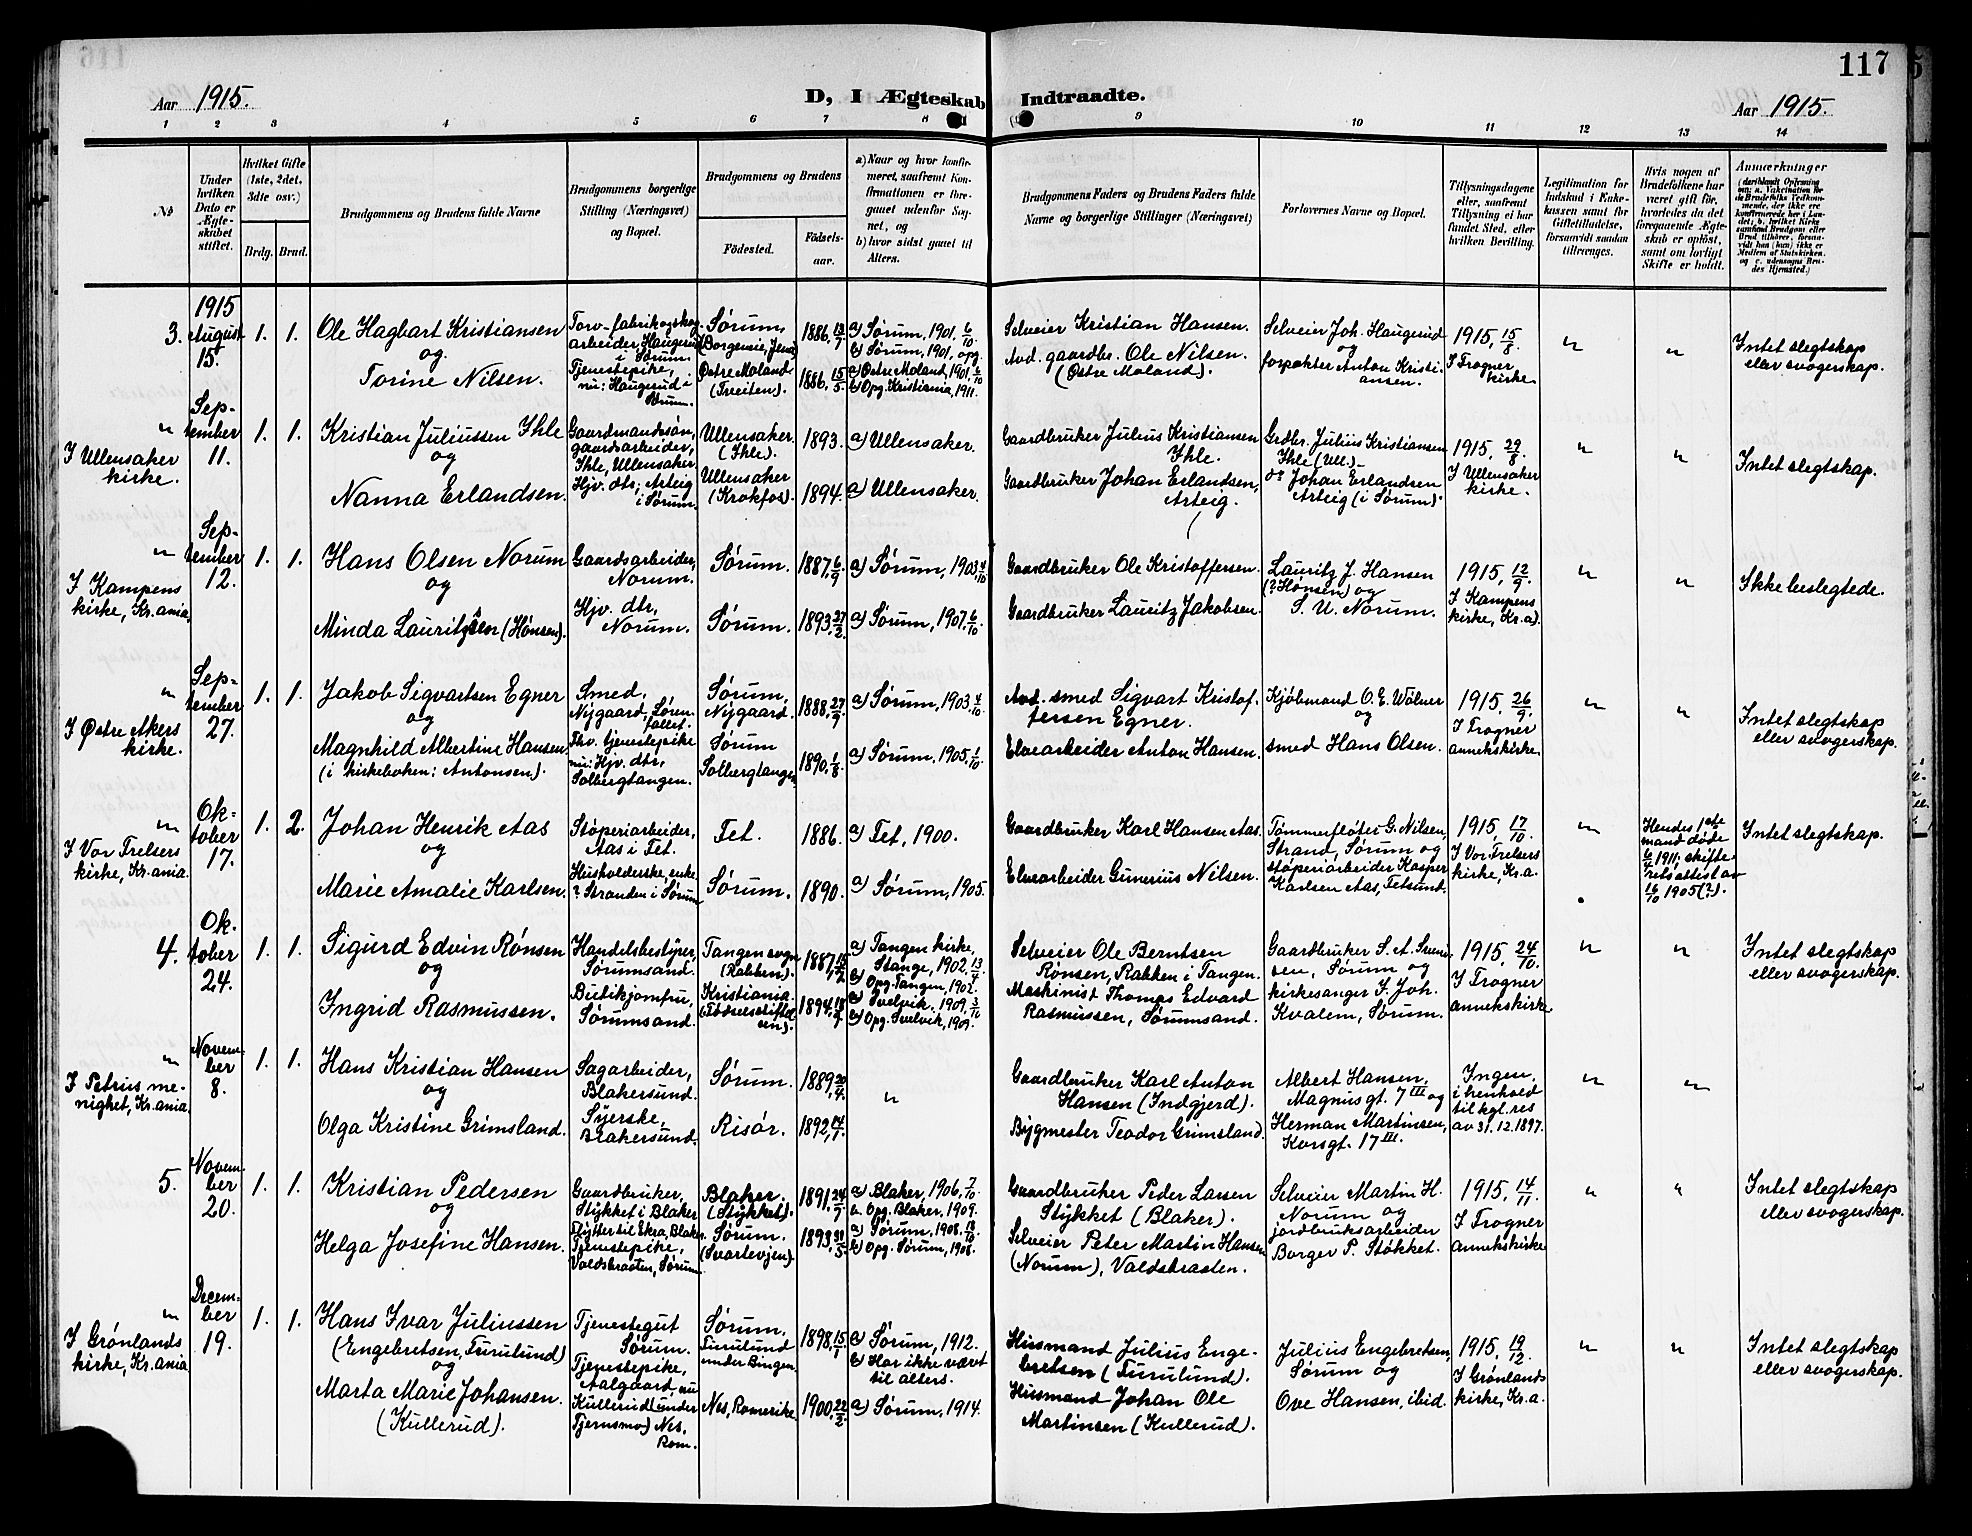 117
Aar 1915.
D, I Ægteskab Indtraadte.
Aar 1915.
1 2 3 4 5 6 7 8 9 10 11 12 13 14
No
Under hvilken Dato er Ægteskabet stiftet.
Hvilket Gifte (1ste, 2det, 3die osv.)
Brdg. Brud.
Brudgommens og Brudens fulde Navne
Brudgommens borgerlige Stilling (Næringsvei) og Bopæl.
Brudgommens og Brudens
Fødested.
Fødselsaar.
a) Naar og hvor konfirmeret, saafremt Konfirmationen er foregaaet udenfor Sognet, og
b) hvor sidst gaaet til Alters.
Brudgommens Faders og Brudens Faders fulde Navne og borgerlige Stillinger (Næringsvei)
Forlovernes Navne og Bopæl.
Tillysningsdagene eller, saafremt Tillysning ei har fundet Sted, efter hvilken Bevilling.
Legitimation for Indskud i Enkekassen samt for Giftetilladelse, forsaavidt saadan tiltrænges.
Hvis nogen af Brudefolkene har været gift før, hvorledes da det foregaaende Ægteskab er opløst, samt om lovligt Skifte er holdt.
Anmærkninger
3.
1915 August 15.
1. 1.
Ole Hagbart Kristiansen
og
Torine Nilsen.
Torv-fabrik og skogarbeider, Haugerud i Sørum.
Tjenestepike, nu: Haugerud i Sørum.
Sørum,
Østre Moland (Tveiten).
1886, 13/7
1886, 15/5
a) Sørum, 1901, 6/10
b) Sørum, 1901, opg.
a) Østre Moland, 1901, 6/10
b) Opg. Kristiania, 1911.
Selveier Kristian Hansen.
Avd. gaardbr. Ole Nilsen.
(Østre Moland).
Selveier Joh. Haugerud
og
forpakter Anton Kristiansen.
1915, 15/8.
I Frogner kirke.
" "
Intet slegtskap eller svogerskap.
"
I Ullensaker kirke.
September 11.
1. 1.
Kristian Juliussen Ihle
og
Nanna Erlandsen.
Gaardmandssøn, gaardsarbeider, Ihle, Ullensaker.
Hjv. dtr; Arteig i Sørum.
Ullensaker. (Ihle).
Ullensaker (Krokfos).
1893.
1894.
a) Ullensaker.
a) Ullensaker.
Gaardbruker Julius Kristiansen Ihle.
Gaardbruker Johan Erlandsen, Arteig.
Grdbr. Julius Kristiansen Ihle (Ull.)
do Johan Erlandsen Arteig (i Sørum)
1915, 29/8
I Ullensaker kirke.
" "
Intet slegtskap.
"
I Kampens kirke, Kr.ania.
September 12.
1. 1.
Hans Olsen Norum
og
Minda Lauritsen (Hønsen).
Gaardsarbeider, Norum.
Hjv. dtr, Norum.
Sørum.
Sørum.
1887, 6/9
1893, 27/2
a) Sørum, 1903, 4/10
a) Sørum, 1907, 6/10
Gaardbruker Ole Kristoffersen.
Gaardbruker Lauritz Jakobsen.
Lauritz J. Hansen (? Hønsen) og
S. U. Norum.
1915, 12/9.
I Kampens kirke, Kr.a).
" "
Ikke beslegtede.
"
I Østre Akers kirke.
September 27.
1. 1.
Jakob Sigvartsen Egner
og
Magnhild Albertine Hansen
(i kirkeboken: Antonsen).
Smed, Nygaard, Sørenfallet.
Fhv. tjenestepike nu: Hjv. dtr, Solbergtangen.
Sørum, Nygaard.
Sørum Solbergtangen.
1888, 27/9
1890, 1/8
a) Sørum, 1903, 4/10
a) Sørum, 1905, 1/10
Avd. smed Sigvart Kristoffersen Egner.
Elvearbeider Anton Hansen.
Kjøbmand O. E. Wølner
og
smed Hans Olsen.
1915, 26/9.
I Frogner annekskirke.
" "
Intet slegtskap eller svogerskap.
"
I Vor Frelsers kirke, Kr.ania.
Oktober 17.
1. 2.
Johan Henrik Aas
og
Marie Amalie Karlsen.
Støperiarbeider, Aas i Fet.
Husholderske, enke ? Stranden i Sørum
Fet.
Sørum.
1886.
1890.
a) Fet, 1900.
a) Sørum, 1905.
Gaardbruker Karl Hansen Aas.
Elvearbeider Gunerius Nilsen.
Tømmerfløter G. Nilsen, Strand, Sørum og
støperiarbeider Kasper Karlsen Aas, Fetsund.
1915, 17/10.
I Vor Frelsers kirke, Kr.a.
"
Hendes 1ste mand døde 6/4 1911; skifteretsattest av 16/10 1905(?).
Intet slegtskap.
4.
Oktober 24.
1. 1.
Sigurd Edvin Rønsen
og
Ingrid Rasmussen.
Handelsbestyrer, Sørumsand.
Butikjomfru, Sørumsand.
Tangen sogn (Rakken).
Kristiania. (Fødselsstiftelsen).
1887, 15/2
1894, 18/7
a) Tangen kirke, Stange, 1902, 13/4
b) Opg. Tangen, 1902.
a) Svelvik, 1909, 3/10
b) Opg. Svelvik, 1909.
Selveier Ole Berntsen Rønsen, Rakken i Tangen.
Maskinist Thomas Edvard Rasmussen, Sørumsand.
Gaardbruker S. A. Svendsen, Sørum og
kirkesanger I. Joh. Kvalem, Sørum.
1915, 24/10.
I Frogner annekskirke
" "
Intet slegtskap eller svogerskap.
"
I Petrus menighet, Kr.ania.
November 8.
1. 1.
Hans Kristian Hansen
og
Olga Kristine Grimsland.
Sagarbeider, Blakersund.
Syerske, Blakersund.
Sørum.
Risør.
1889, 20/4.
1892, 14/1.
"
Gaardbruker Karl Anton Hansen (Indgjerd).
Bygmester Teodor Grimsland.
Albert Hansen, Magnusgt. 7 III og
Herman Martinsen, Korsgt. 17 III.
Ingen, i henhold til kgl. res av 31.12.1897.
" "
5.
November 20.
1. 1.
Kristian Pedersen
og
Helga Josefine Hansen.
Gaardbruker, Stykket i Blaker
Flytter til Ekra, Blaker.
Tjenestepike, Valdsbraaten, Sørum
Blaker. (Stykket).
Sørum. (Svartevjen).
1891, 24/7
1893, 30/5
a) Blaker, 1906, 7/10.
b. Opg. Blaker, 1909.
a) Sørum, 1908, 18/10
b) Opg. Sørum, 1908.
Gaardbruker Peder Larsen Stykket (Blaker).
Selveier Peter Martin Hansen (Norum), Valdsbraaten.
Selveier Martin H. Norum og
jordbruksarbeider Borger P. Støkket.
1915, 14/11.
I Frogner annekskirke
" "
Intet slegtskap eller svogerskap.
"
I Grønlands kirke, Kr.ania
December 19.
1. 1.
Hans Ivar Juliussen
(Engebretsen, Furulund)
og
Marta Marie Johansen.
(Kullerud).
Tjenestegut Sørum.
Tjenestepike, Aalgaard, nu Kullerud (under Tjernsmo) Nes, Rom.
Sørum, Furulund under Bingen.
Nes, Romerike
1898, 15/1
1900, 22/2
a) Sørum, 1912.
b) Har ikke været til alters.
a) Sørum, 1914.
Husmand Julius Engebretsen (Furulund).
Husmand Johan Ole Martinsen (Kullerud).
Julius Engebretsen, Sørum og
Ove Hansen, ibid.
1915, 19/12.
I Grønlands kirke, Kr.a.
" "
Intet slegtskap eller svogerskap.